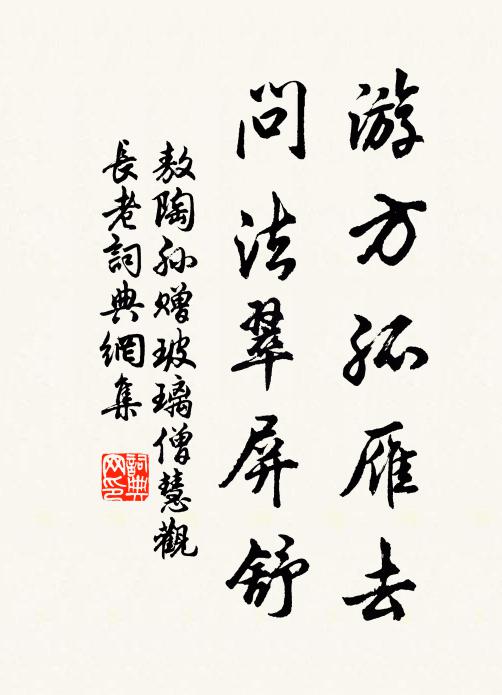 游方孤雁去
問法翠屏舒
敖陶孙赠玻璃僧慧觀
長老詞典網集
詞典网印